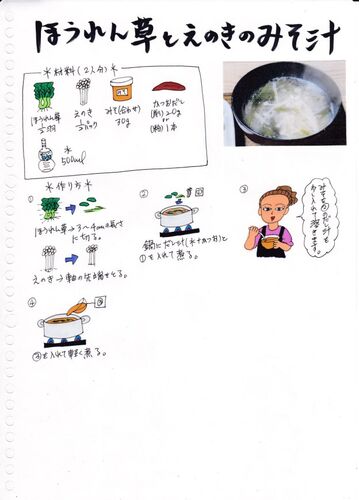 ほうれん草とえのきのみそ汁
＊材料(2人分)＊
ほうれん草
1/3羽
えのき
1/2パック
みそ(合わせ)
30g
かつおだし
(削)20g
or
(粉)1本
水
500ml
＊作り方＊
①
ほうれん草→3〜4cmの長さ
に切る。
えのき→軸の先端をとる。
②
鍋にだし汁(水+かつお)と
①を入れて煮る。
③
みそを②のだし汁を
少し入れて溶きます。
④
③
③を入れて軽く煮る。